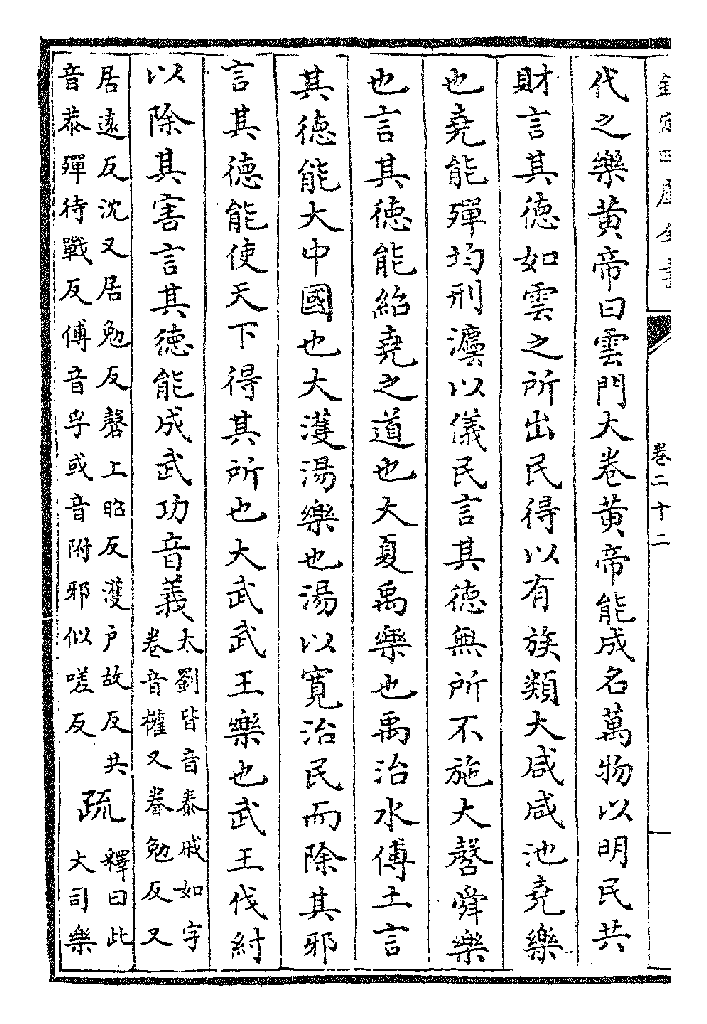 欽定四庫全書
卷二十二
代之樂黄帝曰雲門大卷黄帝能成名萬物以明民共
財言其徳如雲之所出民得以有族類大咸咸池堯樂
也堯能殫均刑灋以儀民言其德無所不施大㲈舜樂
也言其德能紹堯之道也大夏禹樂也禹治水傅土言
其徳能大中國也大濩湯樂也湯以寛治民而除其邪
言其德能使天下得其所也大武武王樂也武王伐紂
以除其害言其徳能成武功音義大劉皆音泰戚如字
卷音權又眷勉反又
居逺反沈又居勉反㲈上昭反濩户故反共
音恭殫待戰反傅音孚或音附邪似嗟反
疏釋曰此
大司樂